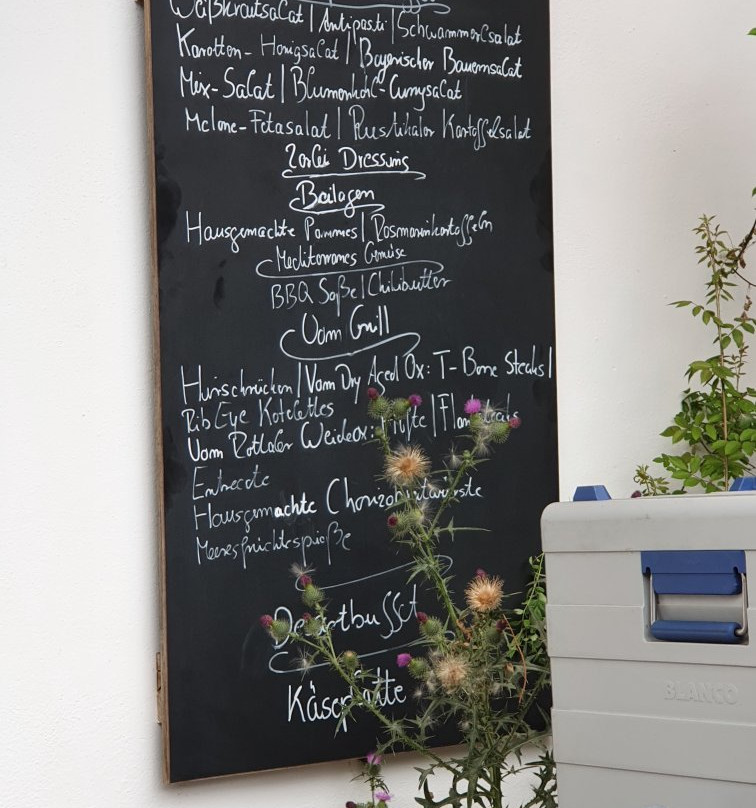 Weißkrautsalat | Antipasti | Schwammerlsalat
Karotten-Honigsalat | Bayerischer Bauernsalat
Mix-Salat | Blumenkohl-Currysalat
Melone-Fetasalat | Rustikaler Kartoffelsalat
2erlei Dressing
Beilagen
Hausgemachte Pommes | Rosmarinkartoffeln
Mediterranes Gemüse
BBQ Soße | Chilibutter
Vom Grill
Hirschrücken | Vom Dry Aged Ox: T-Bone Steaks |
Rib Eye Koteletts
Vom Rottaler Weideox: Hüfte |
Entrecote
Hausgemachte
Meeresfrüchtespieße
Käseplatte
BLANCO